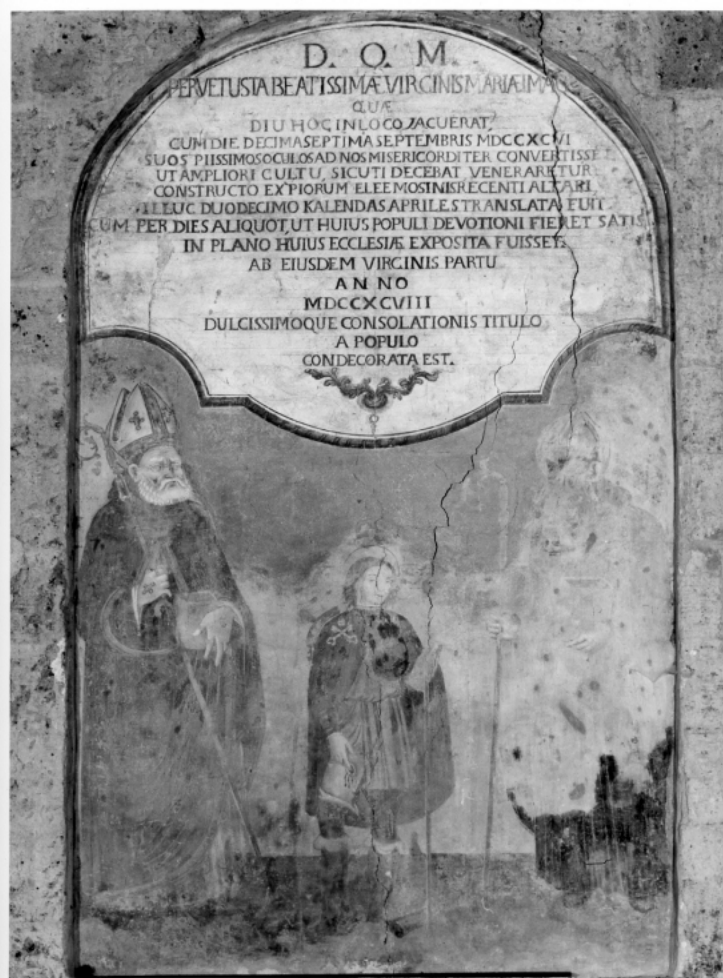 D. O. M.
PERVETUSTA BEATISSIMÆ VIRGINIS MARIÆ IMAGO
QUÆ
DIU HOC IN LOCO JACUERAT,
CUM DIE DECIMA SEPTIMA SEPTEMBRIS MDCCXCVI
SUOS PIISSIMOS OCULOS AD NOS MISERICORDITER CONVERTISSET
UT AMPLIORI CULTU, SICUTI DECEBAT VENERARETUR
CONSTRUCTO EX PIORUM ELEEMOSINIS RECENTI ALTARI
ILLUC DUODECIMO KALENDAS APRILES TRANSLATA FUIT
CUM PER DIES ALIQUOT, UT HUIUS POPULI DEVOTIONI FIERET SATIS
IN PLANO HUIUS ECCLESIÆ EXPOSITA FUISSET
AB EIUSDEM VIRGINIS PARTU
ANNO
MDCCXCVIII
DULCISSIMOQUE CONSOLATIONIS TITULO
A POPULO
CONDECORATA EST.